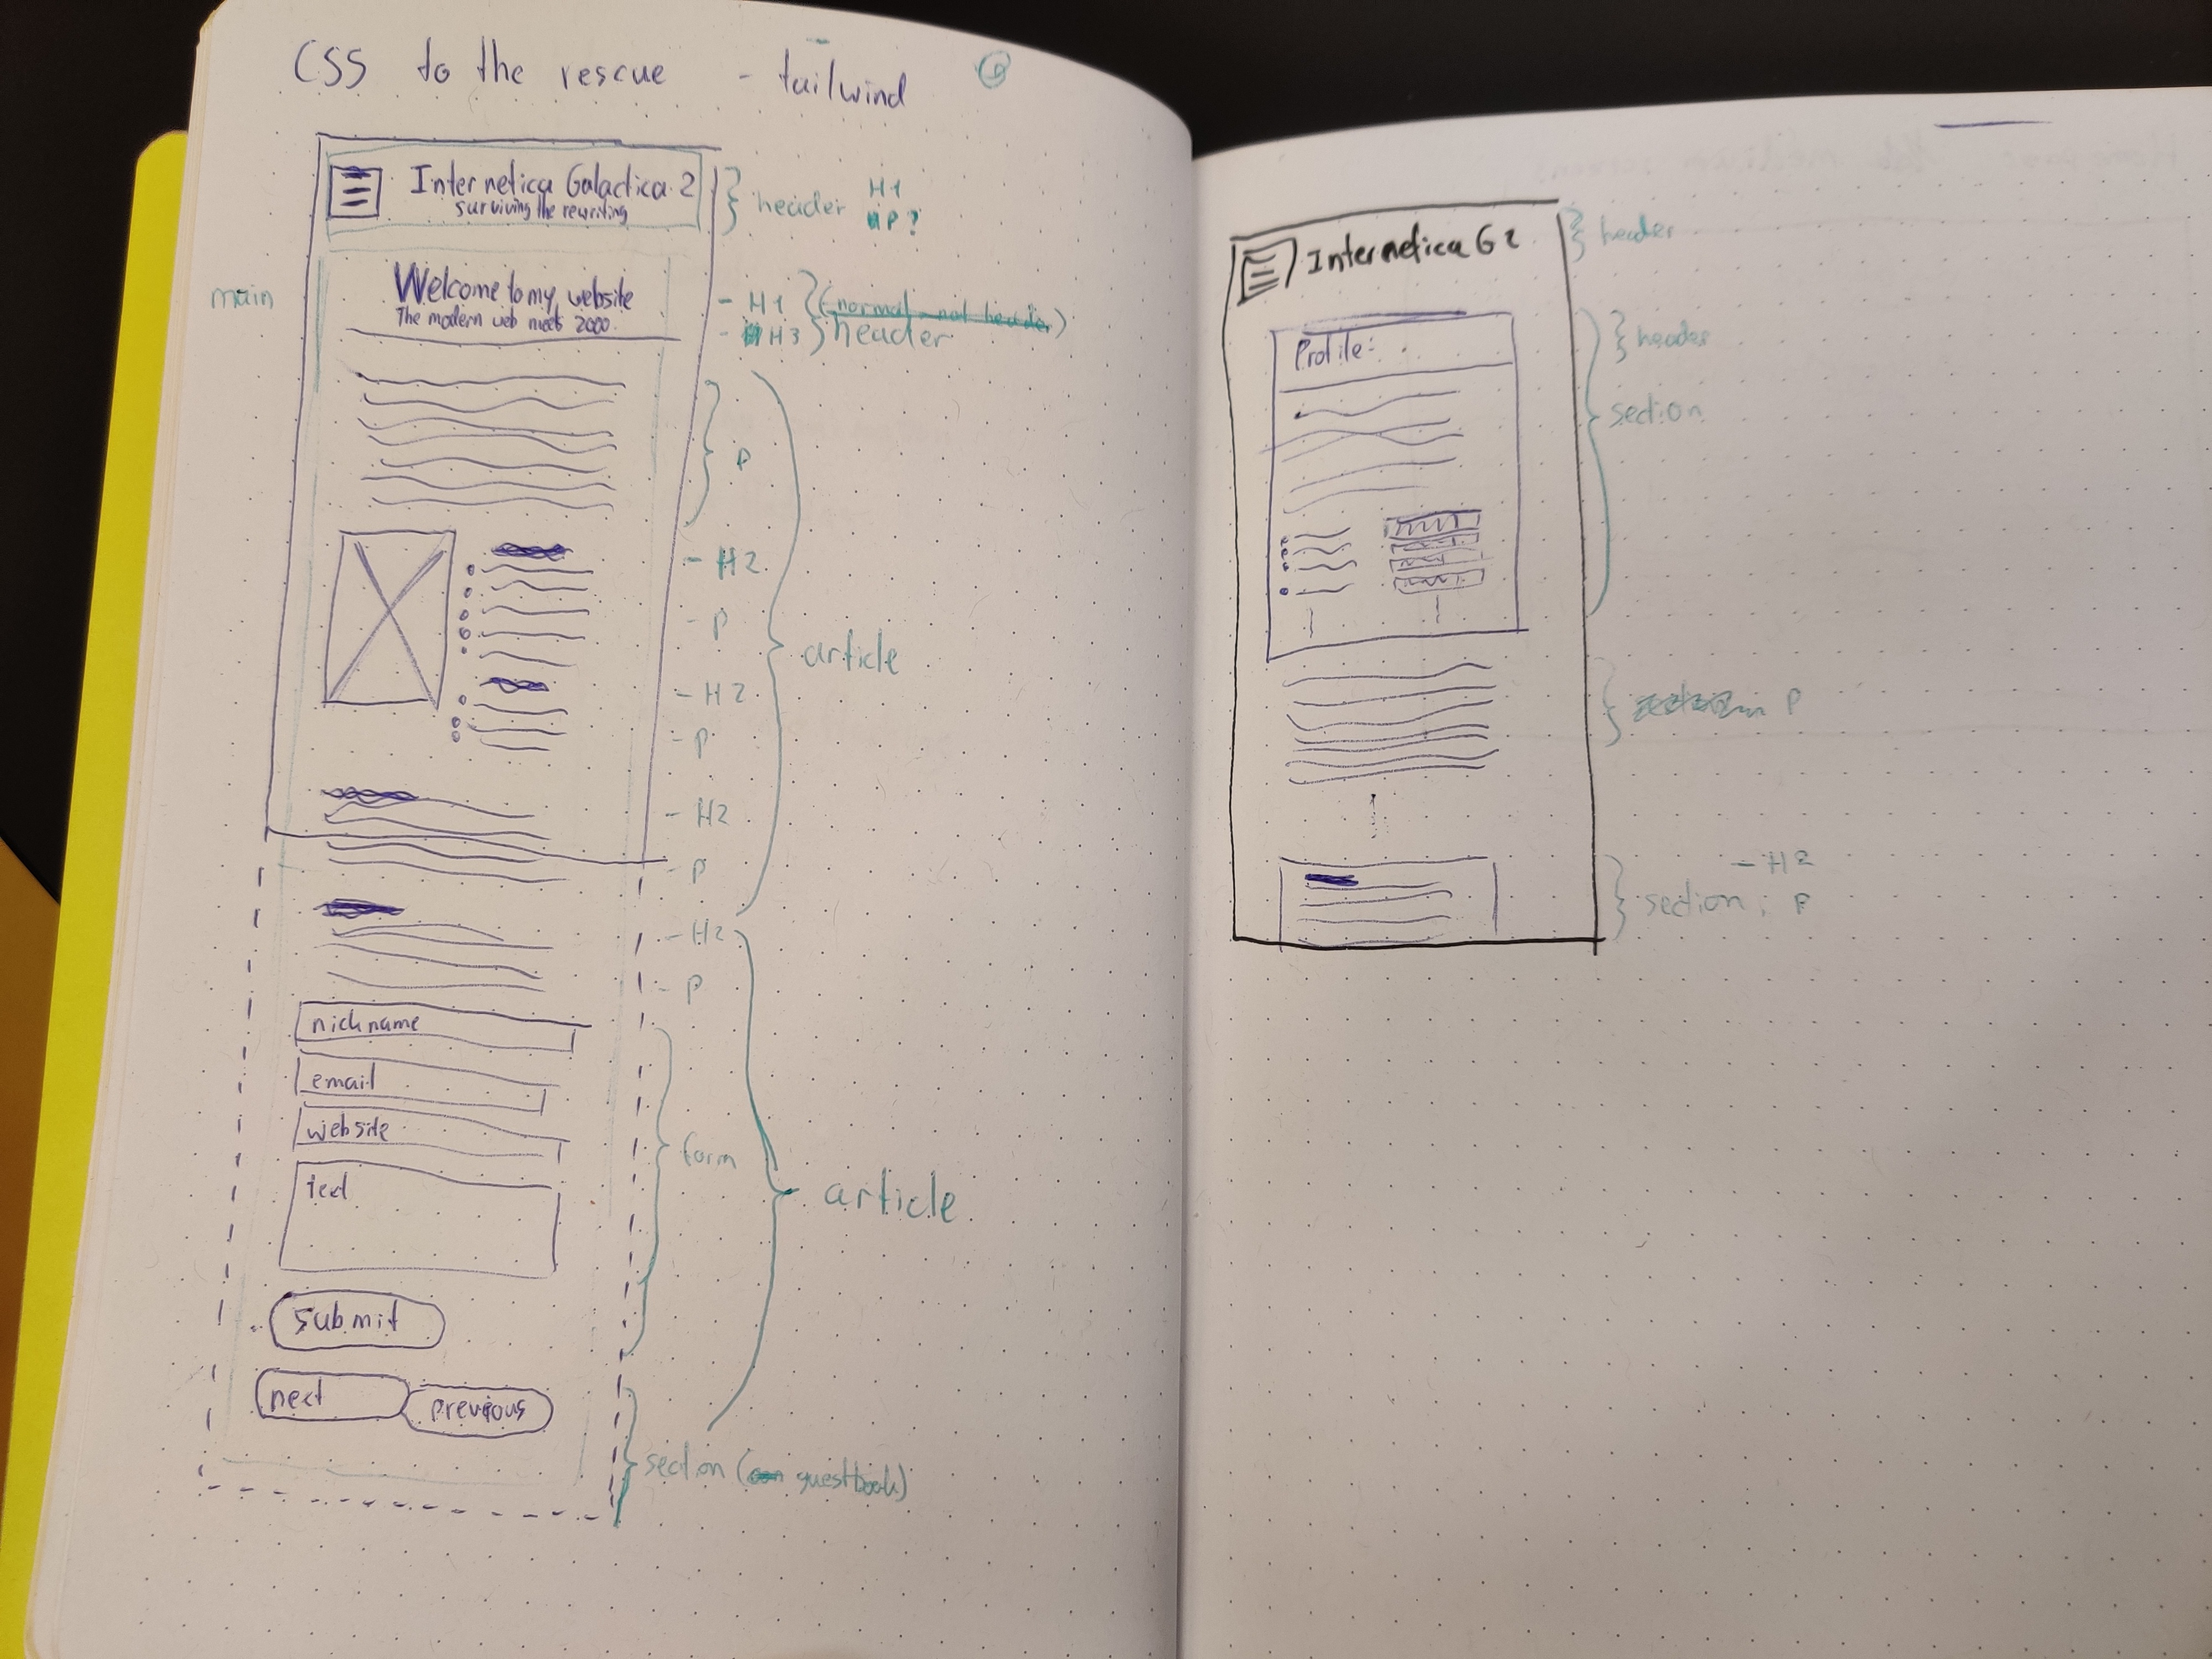 CSS to the rescue - tailwind
Internetica Galactica 2
surviving the rewriting
} header H1
P?
main
Welcome to my website
The modern web meets 2000.
- H1 } (normal not header)
- H3 ) header
} P
- H2
- P
} article
- H2
- P
- H2
- P
- H2
- P
nickname
email
website
text
} form
} article
submit
next
previous
} section (guestbook)
Internetica G2
} header
Profile:
} header
} section
} P
- H2
} section; P